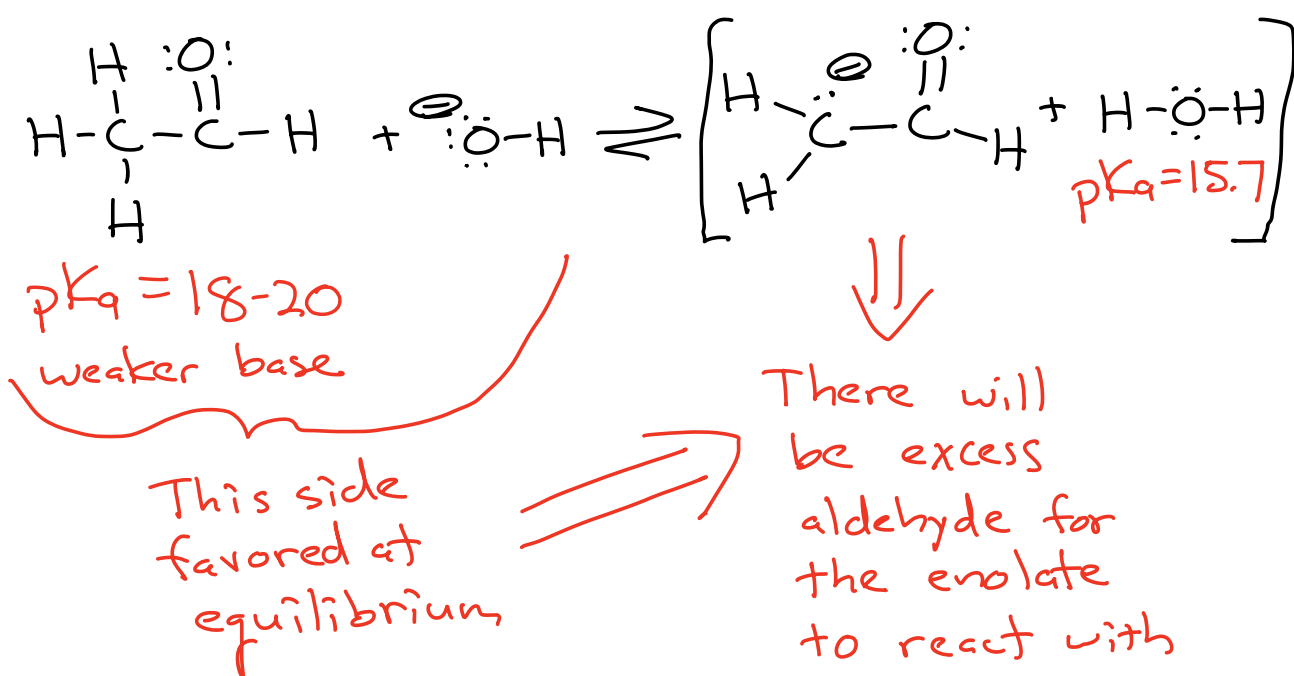 H :O: H-C-C-H + ⊖:O-H ⇌ [H H C-C H :O: ⊖ + H-O-H]
H
pKa = 15.7
pKa = 18-20
weaker base
This side
favored at
equilibrium
There will
be excess
aldehyde for
the enolate
to react with